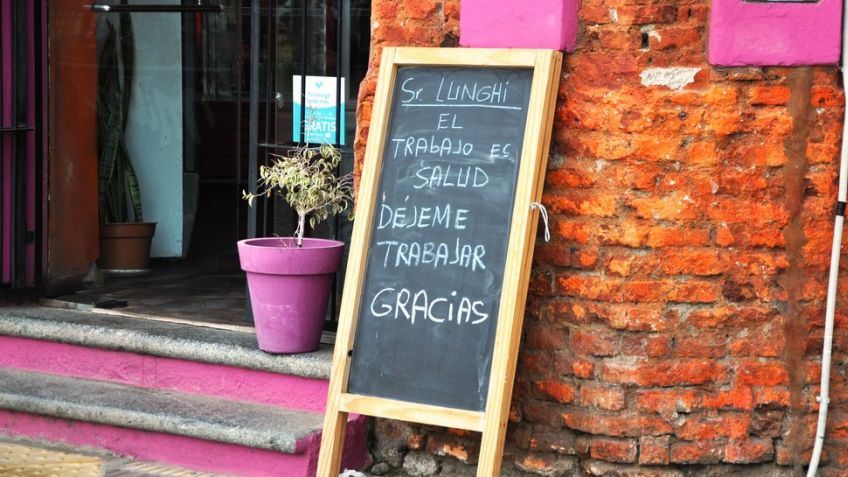 Sr. LUNGHI
EL
TRABAJO ES
SALUD
DÉJEME
TRABAJAR
GRACIAS
GRATIS